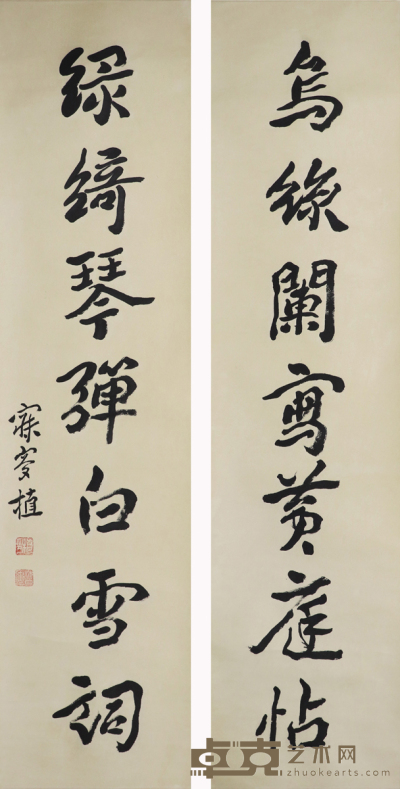 烏絲闌寫黃庭帖
綠綺琴彈白雪詞
寐叟植
卓克艺术网
zhuokearts.com